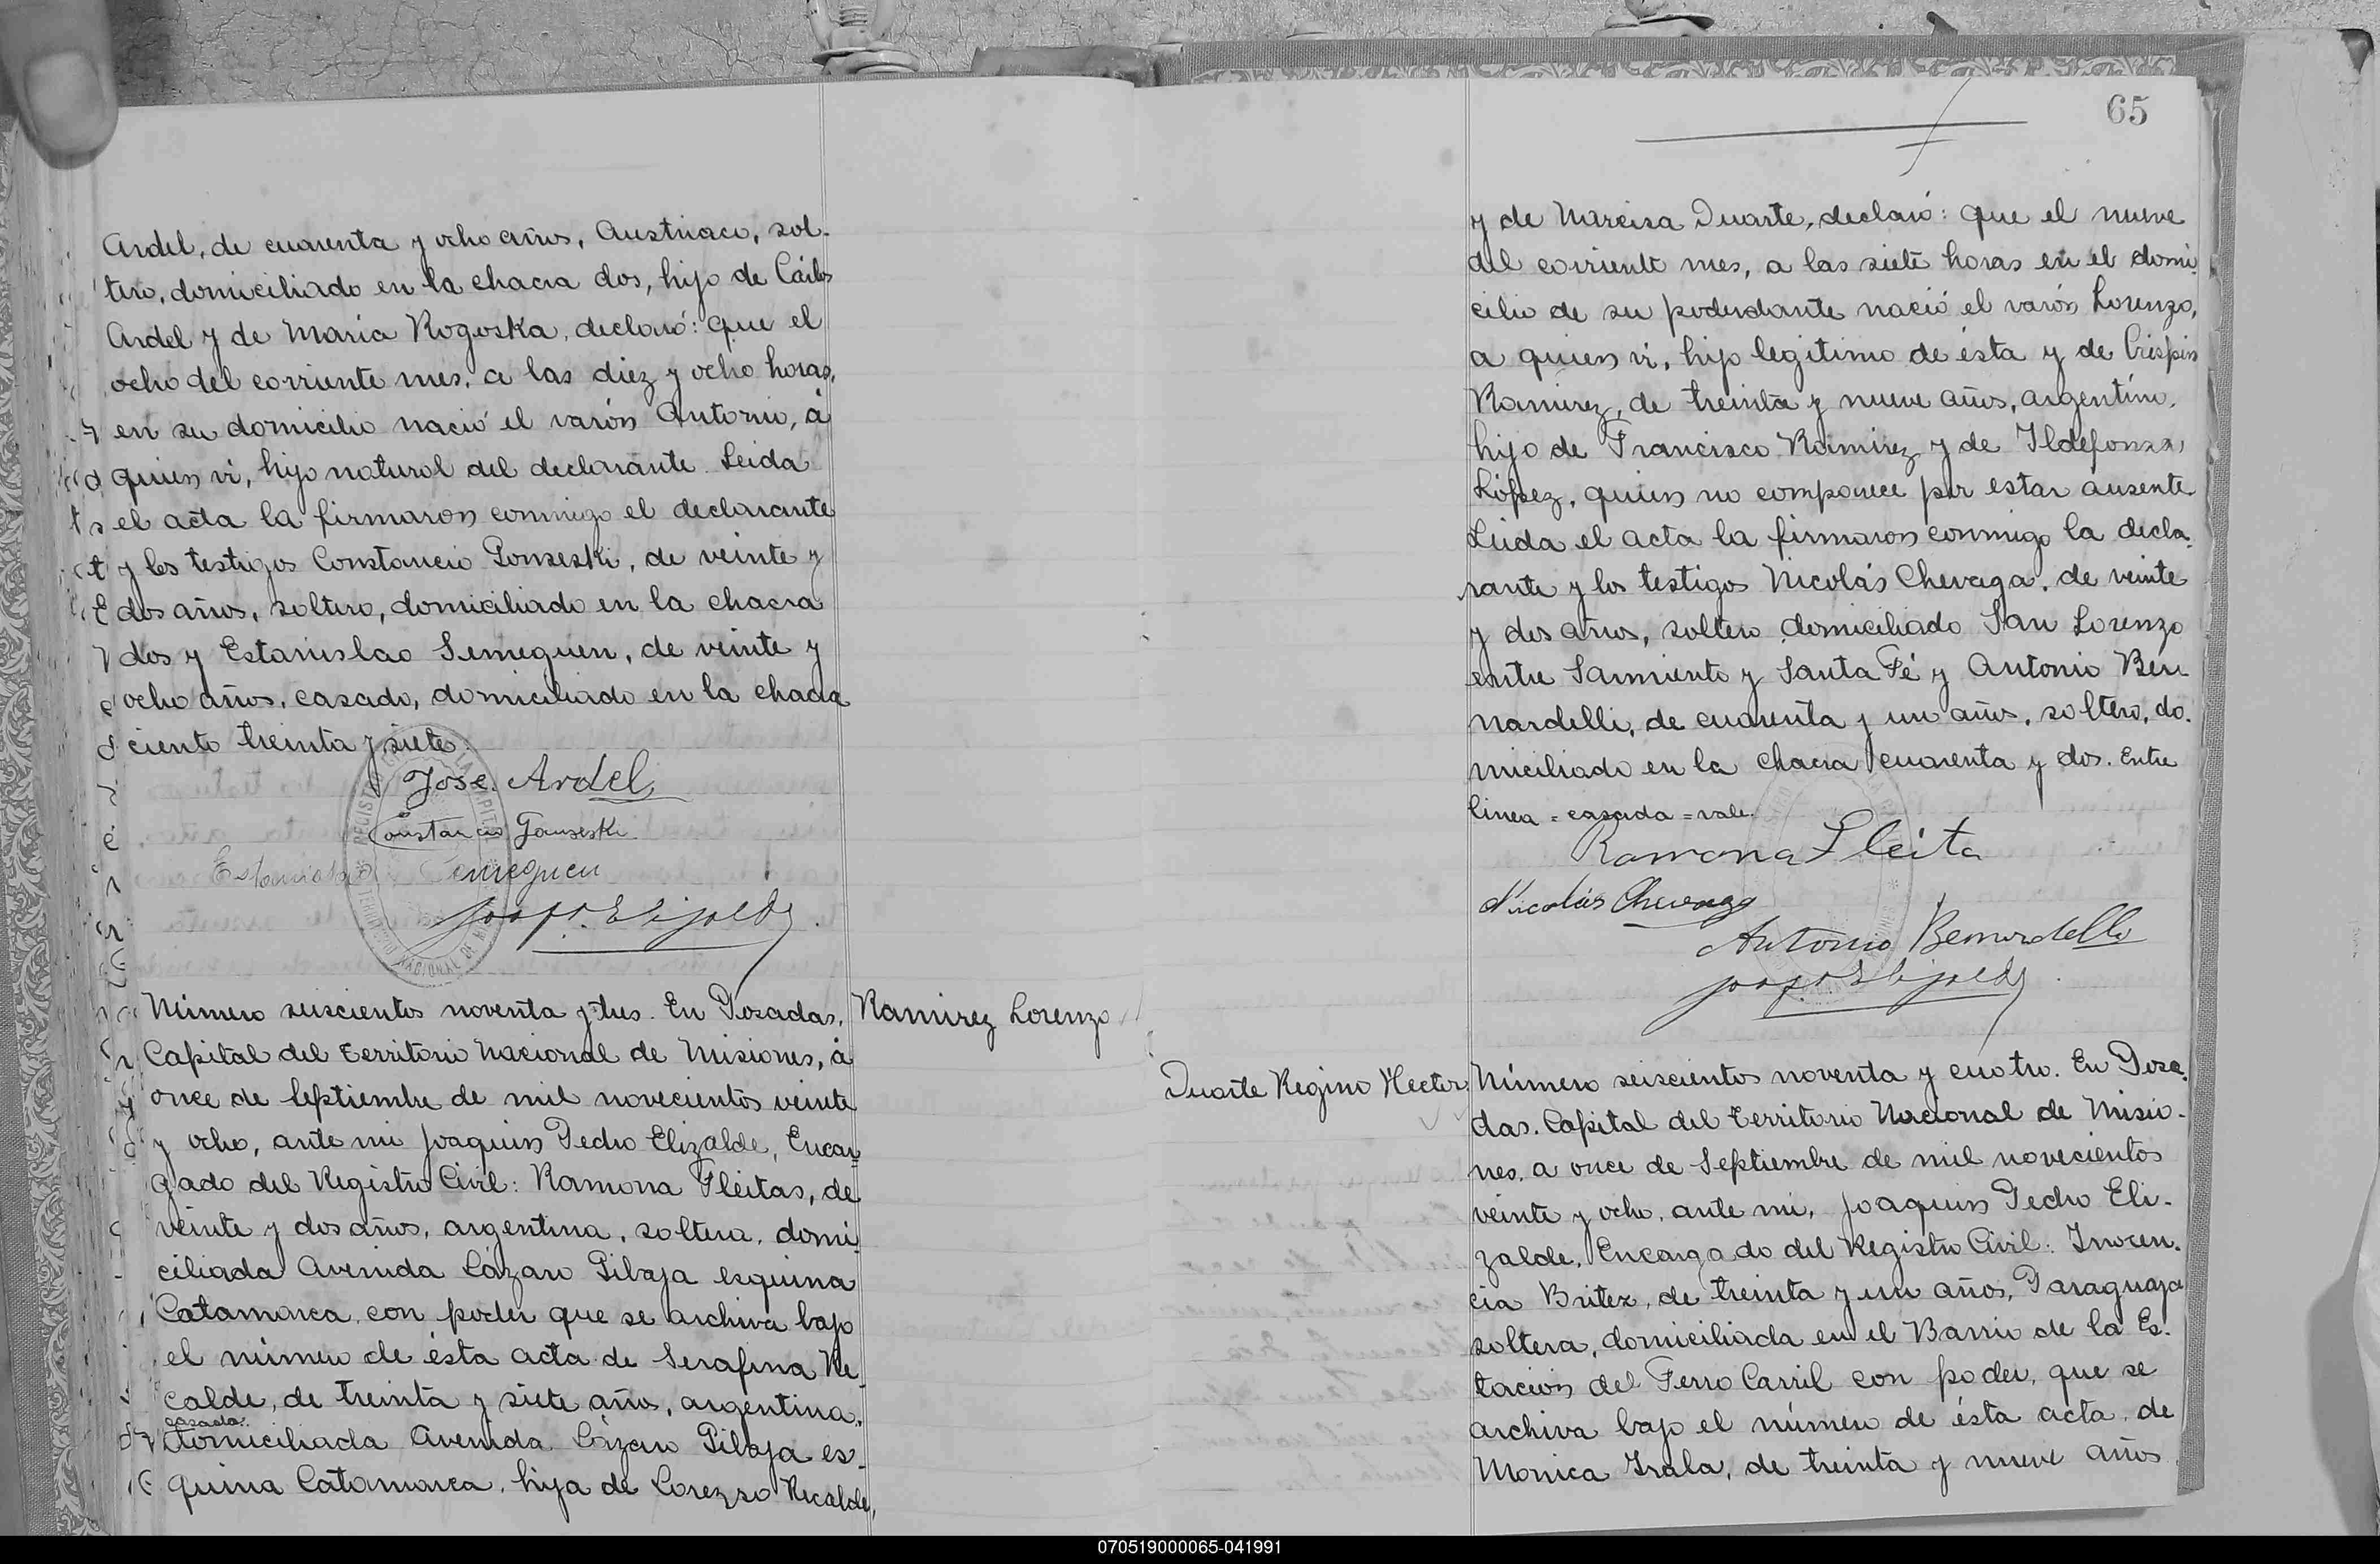 Ardel, de cuarenta y ocho años, Austriaco, sol-
tero, domiciliado en la chacra dos, hijo de Cárlos
Ardel y de Maria Rogoska, declaró: que el
ocho del corriente mes, a las diez y ocho horas,
en su domicilio nació el varón Antonio, á
quien vi, hijo natural del declarante. Leida
el acta la firmaron conmigo el declarante
y los testigos Constancio Gonseski, de veinte y
dos años, soltero, domiciliado en la chacra
dos y Estanislao Semeguen, de veinte y
ocho años, casado, domiciliado en la chacra
ciento treinta y siete.
Jose Ardel
Constancio Gonseski
Estanislao Semeguen
Número seiscientos noventa y tres. En Posadas,
Ramirez Lorenzo
Capital del territorio Nacional de Misiones, á
once de Septiembre de mil novecientos veinte
y ocho, ante mi Joaquin Pedro Elizalde, Encar
gado del Registro Civil: Ramona Fleitas, de
veinte y dos años, argentina, soltera, domi
ciliada Avenida Lázaro Gibaja esquina
Catamarca, con poder que se archiva bajo
el número de ésta acta de Serafina Re
calde, de treinta y siete años, argentina,
casada.
domiciliada Avenida Lázaro Gibaja es-
quina Catamarca, hija de Lorezzo Recalde,
65
y de Narcisa Duarte, declaró: que el nueve
del corriente mes, a las siete horas en el domi
cilio de su poderdante nació el varón Lorenzo,
a quien vi, hijo legitimo de ésta y de Crispin
Ramirez, de treinta y nueve años, argentino,
hijo de Francisco Ramirez y de Ildefonza
López, quien no comparece por estar ausente.
Leida el acta la firmaron conmigo la decla-
rante y los testigos Nicolás Chevaga, de veinte
y dos años, soltero domiciliado San Lorenzo
entre Sarmiento y Santa Fé y Antonio Ber
nardelli, de cuarenta y un años, soltero, do-
miciliado en la chacra cuarenta y dos. Entre
linea = casada = vale.
Ramona Fleita
Nicolás Chevaga
Antonio Bernardelli
Duarte Regino Hector
Número seiscientos noventa y cuatro. En Posa-
das. Capital del territorio Nacional de Misio-
nes, a once de Septiembre de mil novecientos
veinte y ocho, ante mi, Joaquin Pedro Eli-
zalde, Encargado del Registro Civil: Inocen-
cia Britez, de treinta y un años, Paraguaya
soltera, domiciliada en el Barrio de la Es-
tación del Ferro Carril con poder, que se
archiva bajo el número de ésta acta, de
Monica Irala, de treinta y nueve años
070519000065-041991